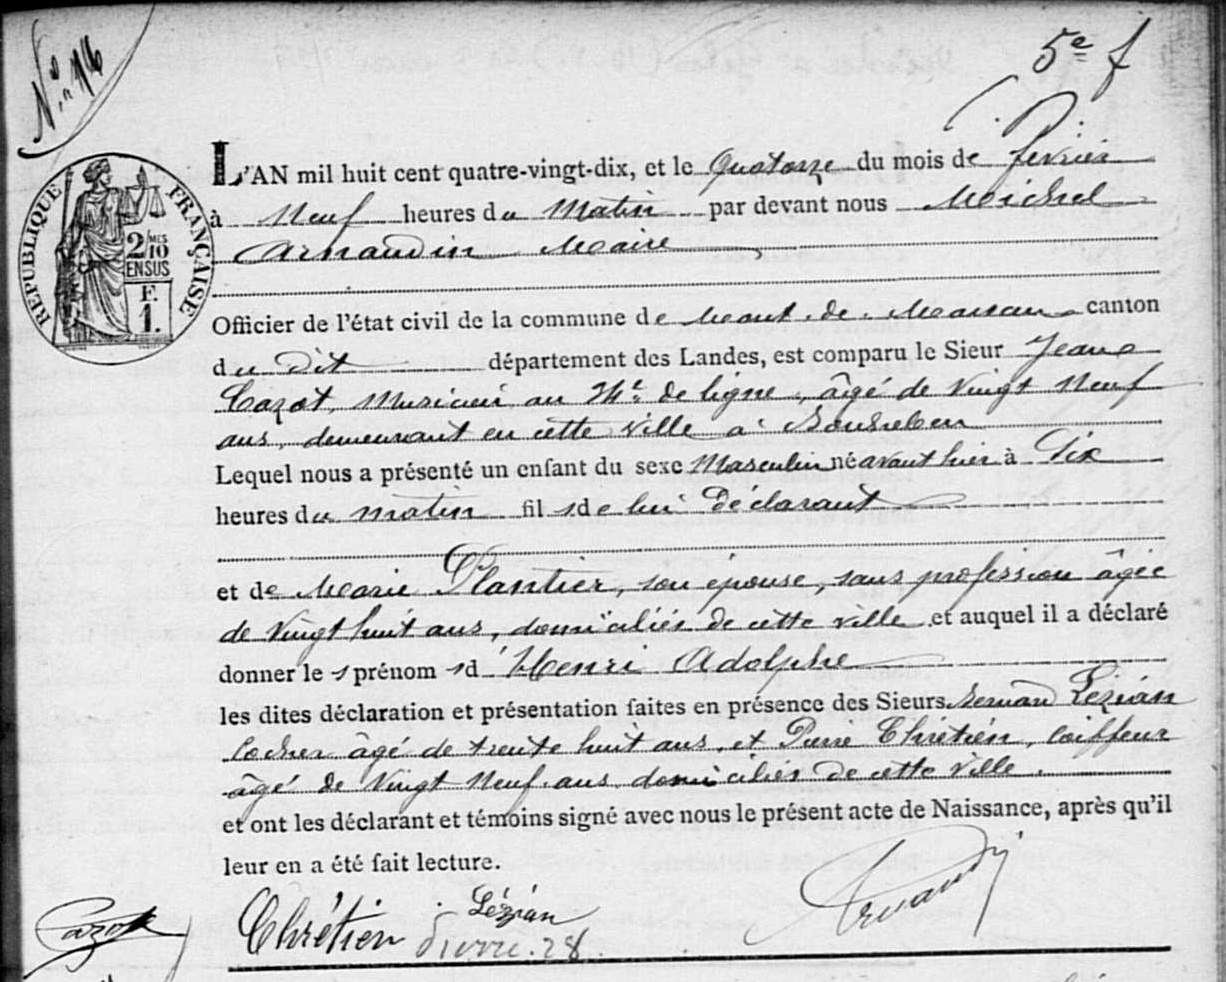 5e f
No 16
RÉPUBLIQUE FRANÇAISE
2/10
EN SUS
F.
1.
L'AN mil huit cent quatre-vingt-dix, et le Quatorze du mois de février
à Neuf heures du Matin par devant nous Michel
Arnaudin Maire
Officier de l'état civil de la commune de Mont-de-Marsan canton
du Dit département des Landes, est comparu le Sieur Jean
Cazot, Musicien au 34e de ligne, âgé de Vingt Neuf
ans, demeurant en cette ville à
Lequel nous a présenté un enfant du sexe Masculin né avant hier à Dix
heures du matin fils de lui Déclarant
et de Marie Plantier, son épouse, sans profession âgée
de Vingt huit ans, domiciliés de cette ville et auquel il a déclaré
donner les prénoms d'Henri Adolphe
les dites déclaration et présentation faites en présence des Sieurs Lézian
Cocher âgé de trente huit ans, et Pierre Chrétien, Coiffeur
âgé de Vingt Neuf ans domiciliés de cette ville.
et ont les déclarant et témoins signé avec nous le présent acte de Naissance, après qu'il
leur en a été fait lecture.
Cazot Chrétien Lézian